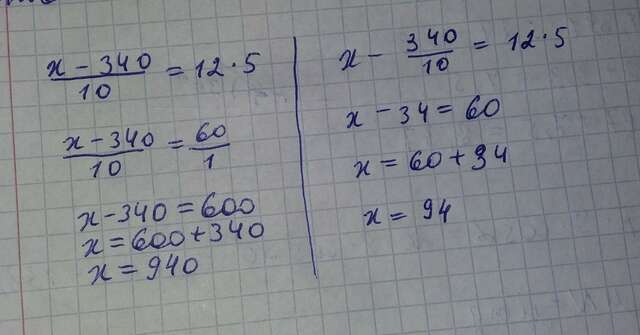 x - 340 / 10 = 12 · 5
x - 340 / 10 = 60 / 1
x - 340 = 600
x = 600 + 340
x = 940
x - 340 / 10 = 12 · 5
x - 34 = 60
x = 60 + 34
x = 94